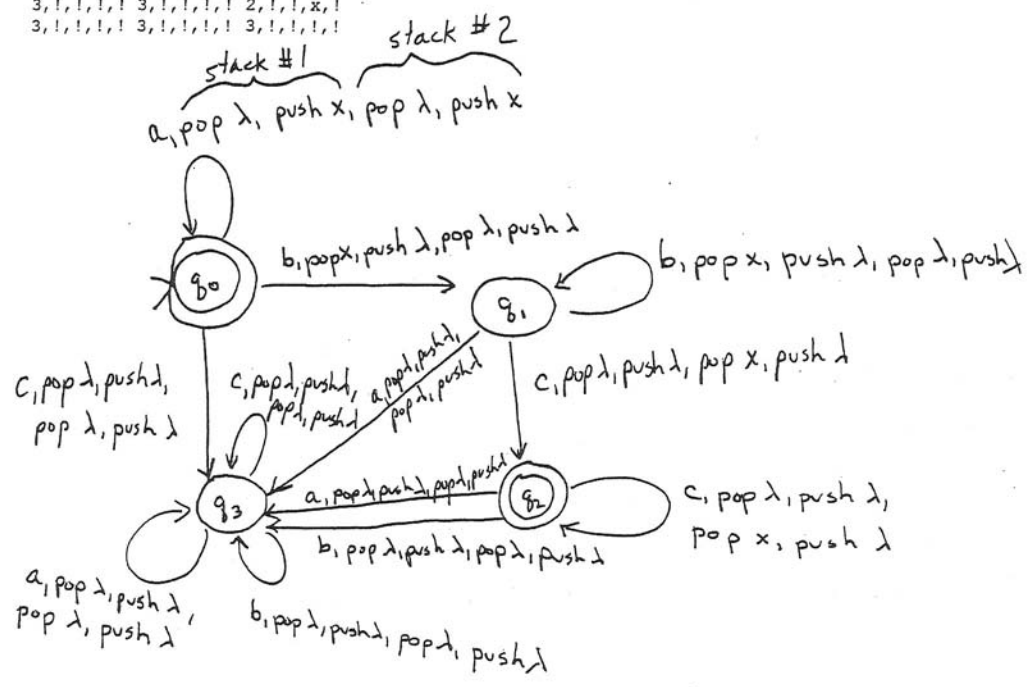 3,!,!,!,! 3,!,!,!,! 2,!,!,x,!
3,!,!,!,! 3,!,!,!,! 3,!,!,!,!
stack #1
stack #2
a, pop λ, push x, pop λ, push x
b, pop x, push λ, pop λ, push λ
b, pop x, push λ, pop λ, push λ
q0
q1
a, pop λ, push λ,
pop λ, push λ
c, pop λ, push λ, pop x, push λ
c, pop λ, push λ,
pop λ, push λ
c, pop λ, push λ,
pop λ, push λ
q3
a, pop λ, push λ, pop λ, push λ
q2
c, pop λ, push λ,
pop x, push λ
b, pop λ, push λ, pop λ, push λ
a, pop λ, push λ,
pop λ, push λ
b, pop λ, push λ, pop λ, push λ